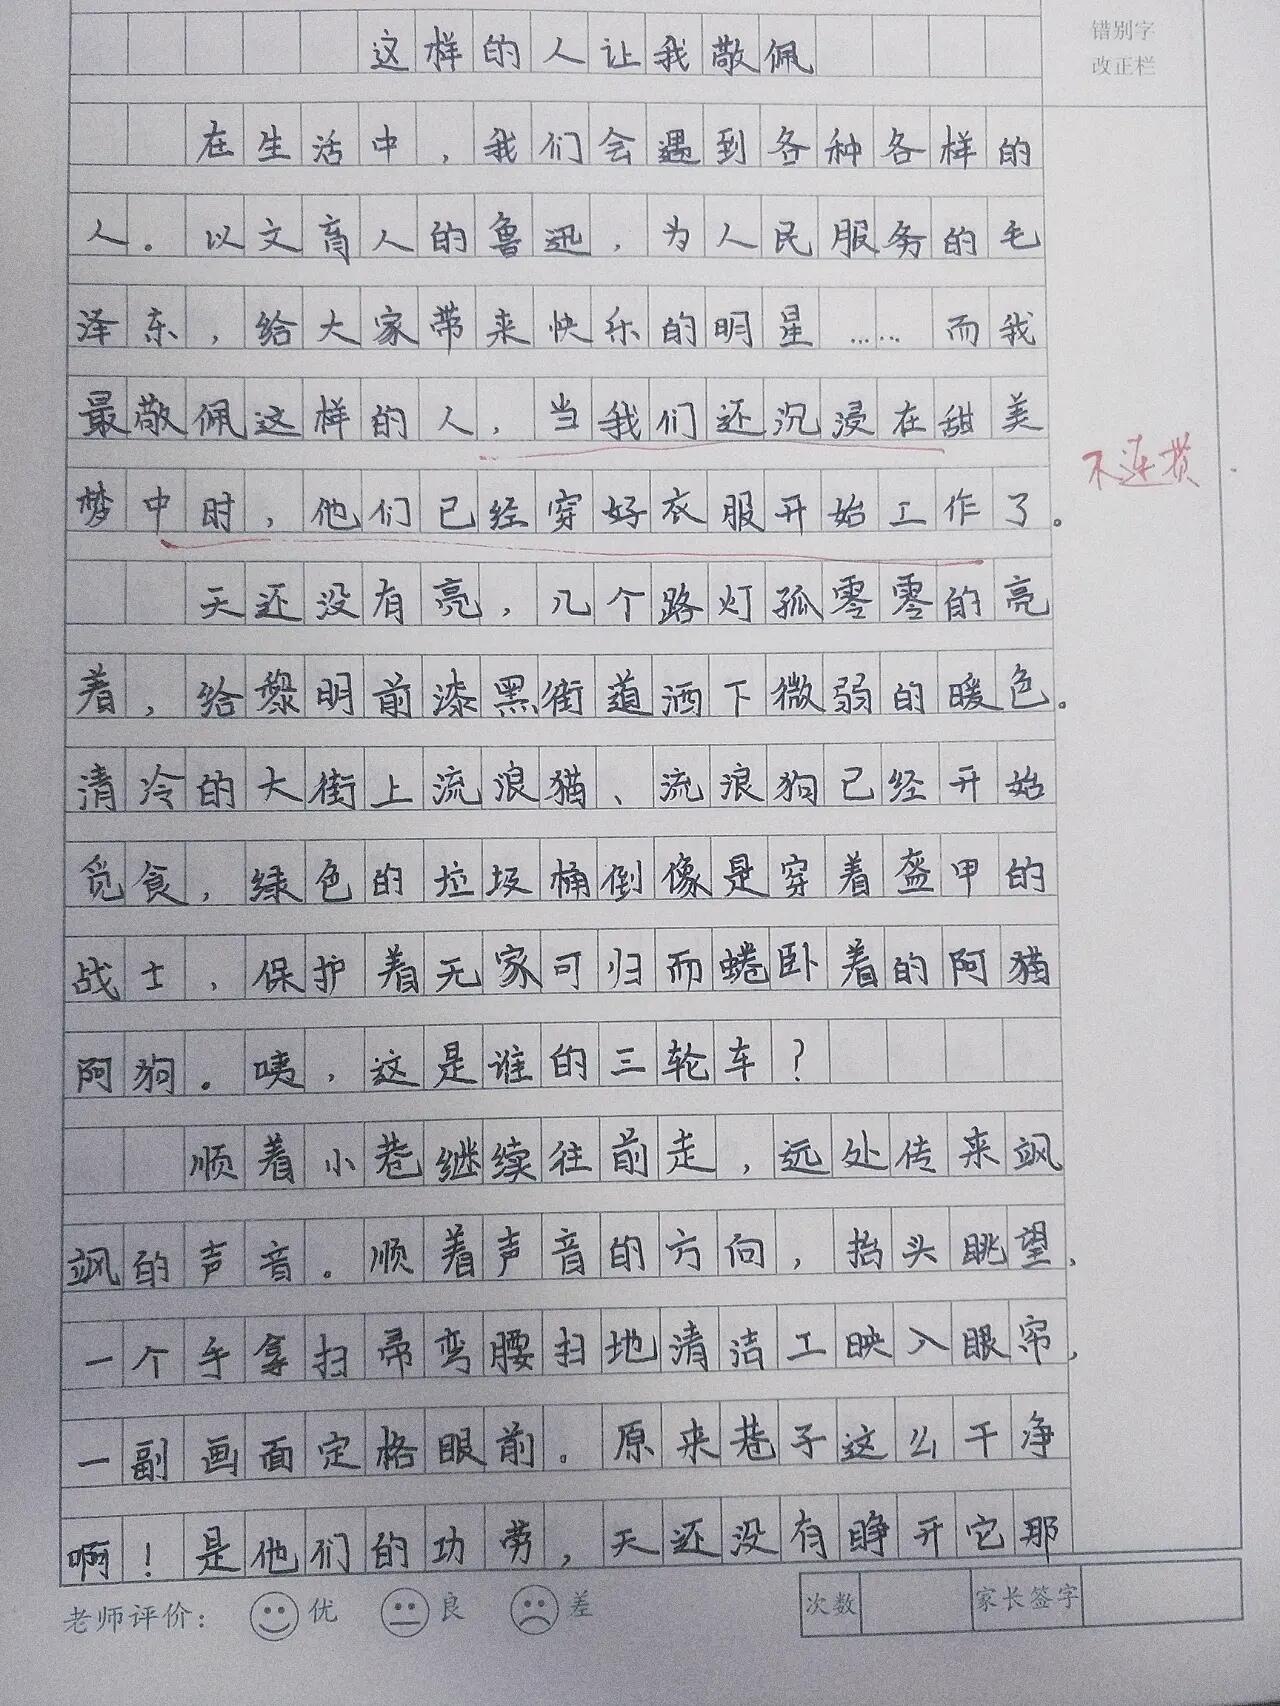 这样的人让我敬佩
错别字
改正栏
在生活中，我们会遇到各种各样的
人。以文育人的鲁迅，为人民服务的毛
泽东，给大家带来快乐的明星……而我
最敬佩这样的人，当我们还沉浸在甜美
不连贯
梦中时，他们已经穿好衣服开始工作了。
天还没有亮，几个路灯孤零零的亮
着，给黎明前漆黑街道洒下微弱的暖色。
清冷的大街上流浪猫、流浪狗已经开始
觅食，绿色的垃圾桶倒像是穿着盔甲的
战士，保护着无家可归而蜷卧着的阿猫
阿狗。咦，这是谁的三轮车？
顺着小巷继续往前走，远处传来飒
飒的声音。顺着声音的方向，抬头眺望，
一个手拿扫帚弯腰扫地清洁工映入眼帘，
一副画面定格眼前。原来巷子这么干净
啊！是他们的功劳，天还没有睁开它那
老师评价： 优 良 差 次数 家长签字